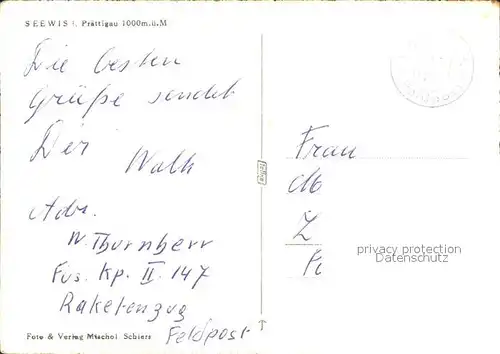 SEEWIS i. Prättigau 1000m.ü.M
Die besten
Grüße sendet
Dir Walk
Adr.
W. Thurnherr
Füs. Kp. II. 147
Raketenzug
Feldpost
Foto & Verlag Mischol Schiers
Frau
M
Z
privacy protection
Datenschutz